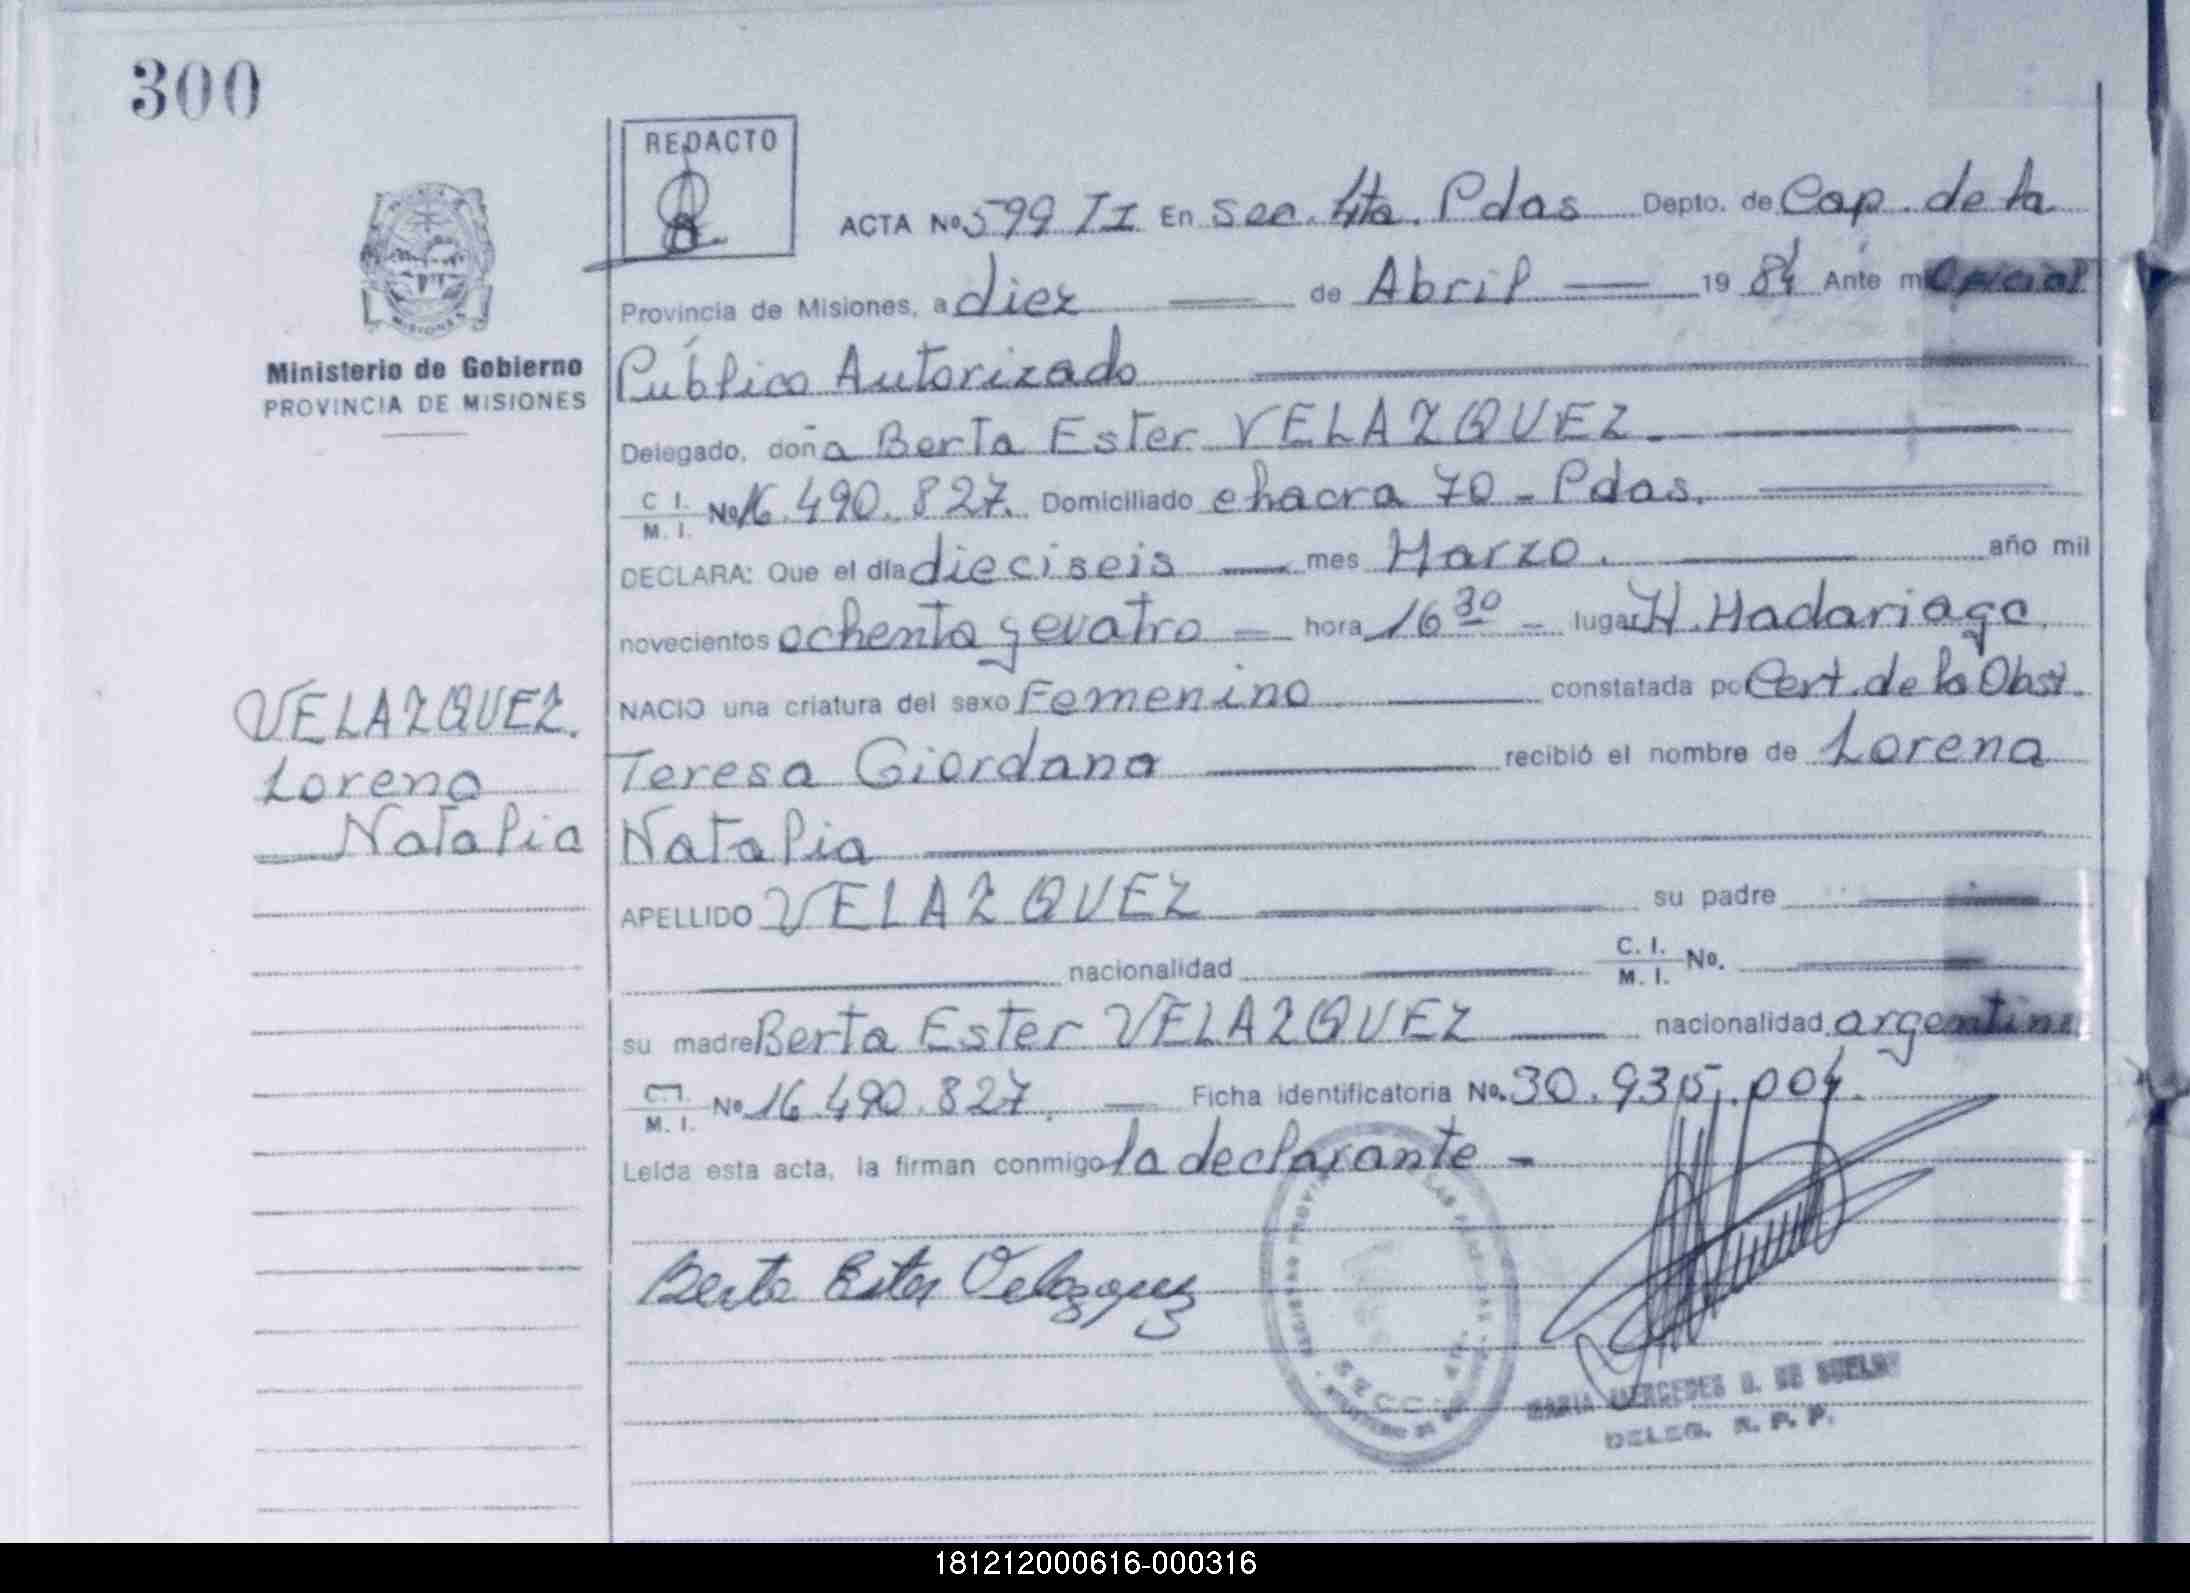 300
REDACTO
ACTA Nº 599 II En Sec. 4ta. Pdas Depto. de Cap. de la
Provincia de Misiones, a diez de Abril 19 84 Ante mi Oficial
Público Autorizado
Ministerio de Gobierno
PROVINCIA DE MISIONES
Delegado, doña Berta Ester VELAZQUEZ.
C I. M. I. Nº 16.490.827. Domiciliado chacra 70 - Pdas.
DECLARA: Que el día dieciseis mes Marzo. año mil
novecientos ochenta y cuatro hora 16 30 lugar H. Madariaga.
NACIO una criatura del sexo Femenino constatada po Cert. de la Obst.
Teresa Giordano recibió el nombre de Lorena
Natalia
VELAZQUEZ.
Lorena
Natalia
APELLIDO VELAZQUEZ su padre
nacionalidad C. I. M. I. No.
su madre Berta Ester VELAZQUEZ nacionalidad argentina
C.I. M. I. Nº 16.490.827. Ficha identificatoria No. 30.935.004.
Leída esta acta, la firman conmigo la declarante -
Berta Ester Velazquez
SECC. 4ta.
MARIA MERCEDES DE
DELEG. R. P. P.
181212000616-000316